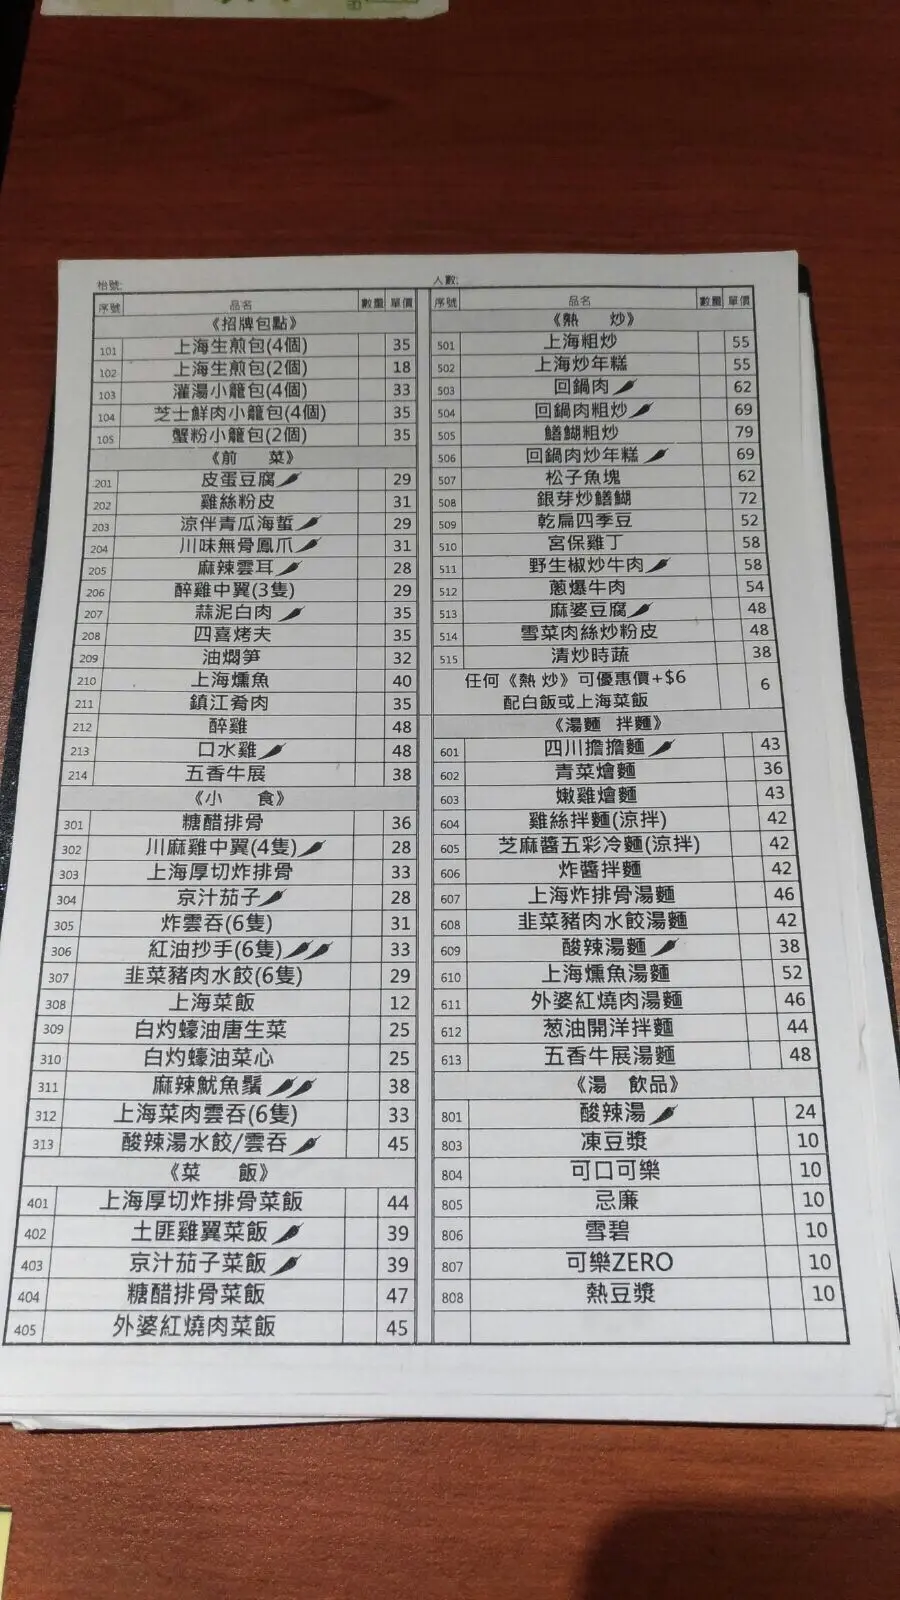 枱號:
序號 品名 數量 單價
《招牌包點》
101 上海生煎包(4個) 35
102 上海生煎包(2個) 18
103 灌湯小籠包(4個) 33
104 芝士鮮肉小籠包(4個) 35
105 蟹粉小籠包(2個) 35
《前 菜》
201 皮蛋豆腐 29
202 雞絲粉皮 31
203 涼伴青瓜海蜇 29
204 川味無骨鳳爪 31
205 麻辣雲耳 28
206 醉雞中翼(3隻) 29
207 蒜泥白肉 35
208 四喜烤夫 35
209 油燜筍 32
210 上海燻魚 40
211 鎮江肴肉 35
212 醉雞 48
213 口水雞 48
214 五香牛展 38
《小 食》
301 糖醋排骨 36
302 川麻雞中翼(4隻) 28
303 上海厚切炸排骨 33
304 京汁茄子 28
305 炸雲吞(6隻) 31
306 紅油抄手(6隻) 33
307 韭菜豬肉水餃(6隻) 29
308 上海菜飯 12
309 白灼蠔油唐生菜 25
310 白灼蠔油菜心 25
311 麻辣魷魚鬚 38
312 上海菜肉雲吞(6隻) 33
313 酸辣湯水餃/雲吞 45
《菜 飯》
401 上海厚切炸排骨菜飯 44
402 土匪雞翼菜飯 39
403 京汁茄子菜飯 39
404 糖醋排骨菜飯 47
405 外婆紅燒肉菜飯 45
人數:
序號 品名 數量 單價
《熱 炒》
501 上海粗炒 55
502 上海炒年糕 55
503 回鍋肉 62
504 回鍋肉粗炒 69
505 鱔鰗粗炒 79
506 回鍋肉炒年糕 69
507 松子魚塊 62
508 銀芽炒鱔鰗 72
509 乾扁四季豆 52
510 宮保雞丁 58
511 野生椒炒牛肉 58
512 蔥爆牛肉 54
513 麻婆豆腐 48
514 雪菜肉絲炒粉皮 48
515 清炒時蔬 38
任何《熱 炒》可優惠價+$6
配白飯或上海菜飯 6
《湯麵 拌麵》
601 四川擔擔麵 43
602 青菜燴麵 36
603 嫩雞燴麵 43
604 雞絲拌麵(涼拌) 42
605 芝麻醬五彩冷麵(涼拌) 42
606 炸醬拌麵 42
607 上海炸排骨湯麵 46
608 韭菜豬肉水餃湯麵 42
609 酸辣湯麵 38
610 上海燻魚湯麵 52
611 外婆紅燒肉湯麵 46
612 葱油開洋拌麵 44
613 五香牛展湯麵 48
《湯 飲品》
801 酸辣湯 24
803 凍豆漿 10
804 可口可樂 10
805 忌廉 10
806 雪碧 10
807 可樂ZERO 10
808 熱豆漿 10